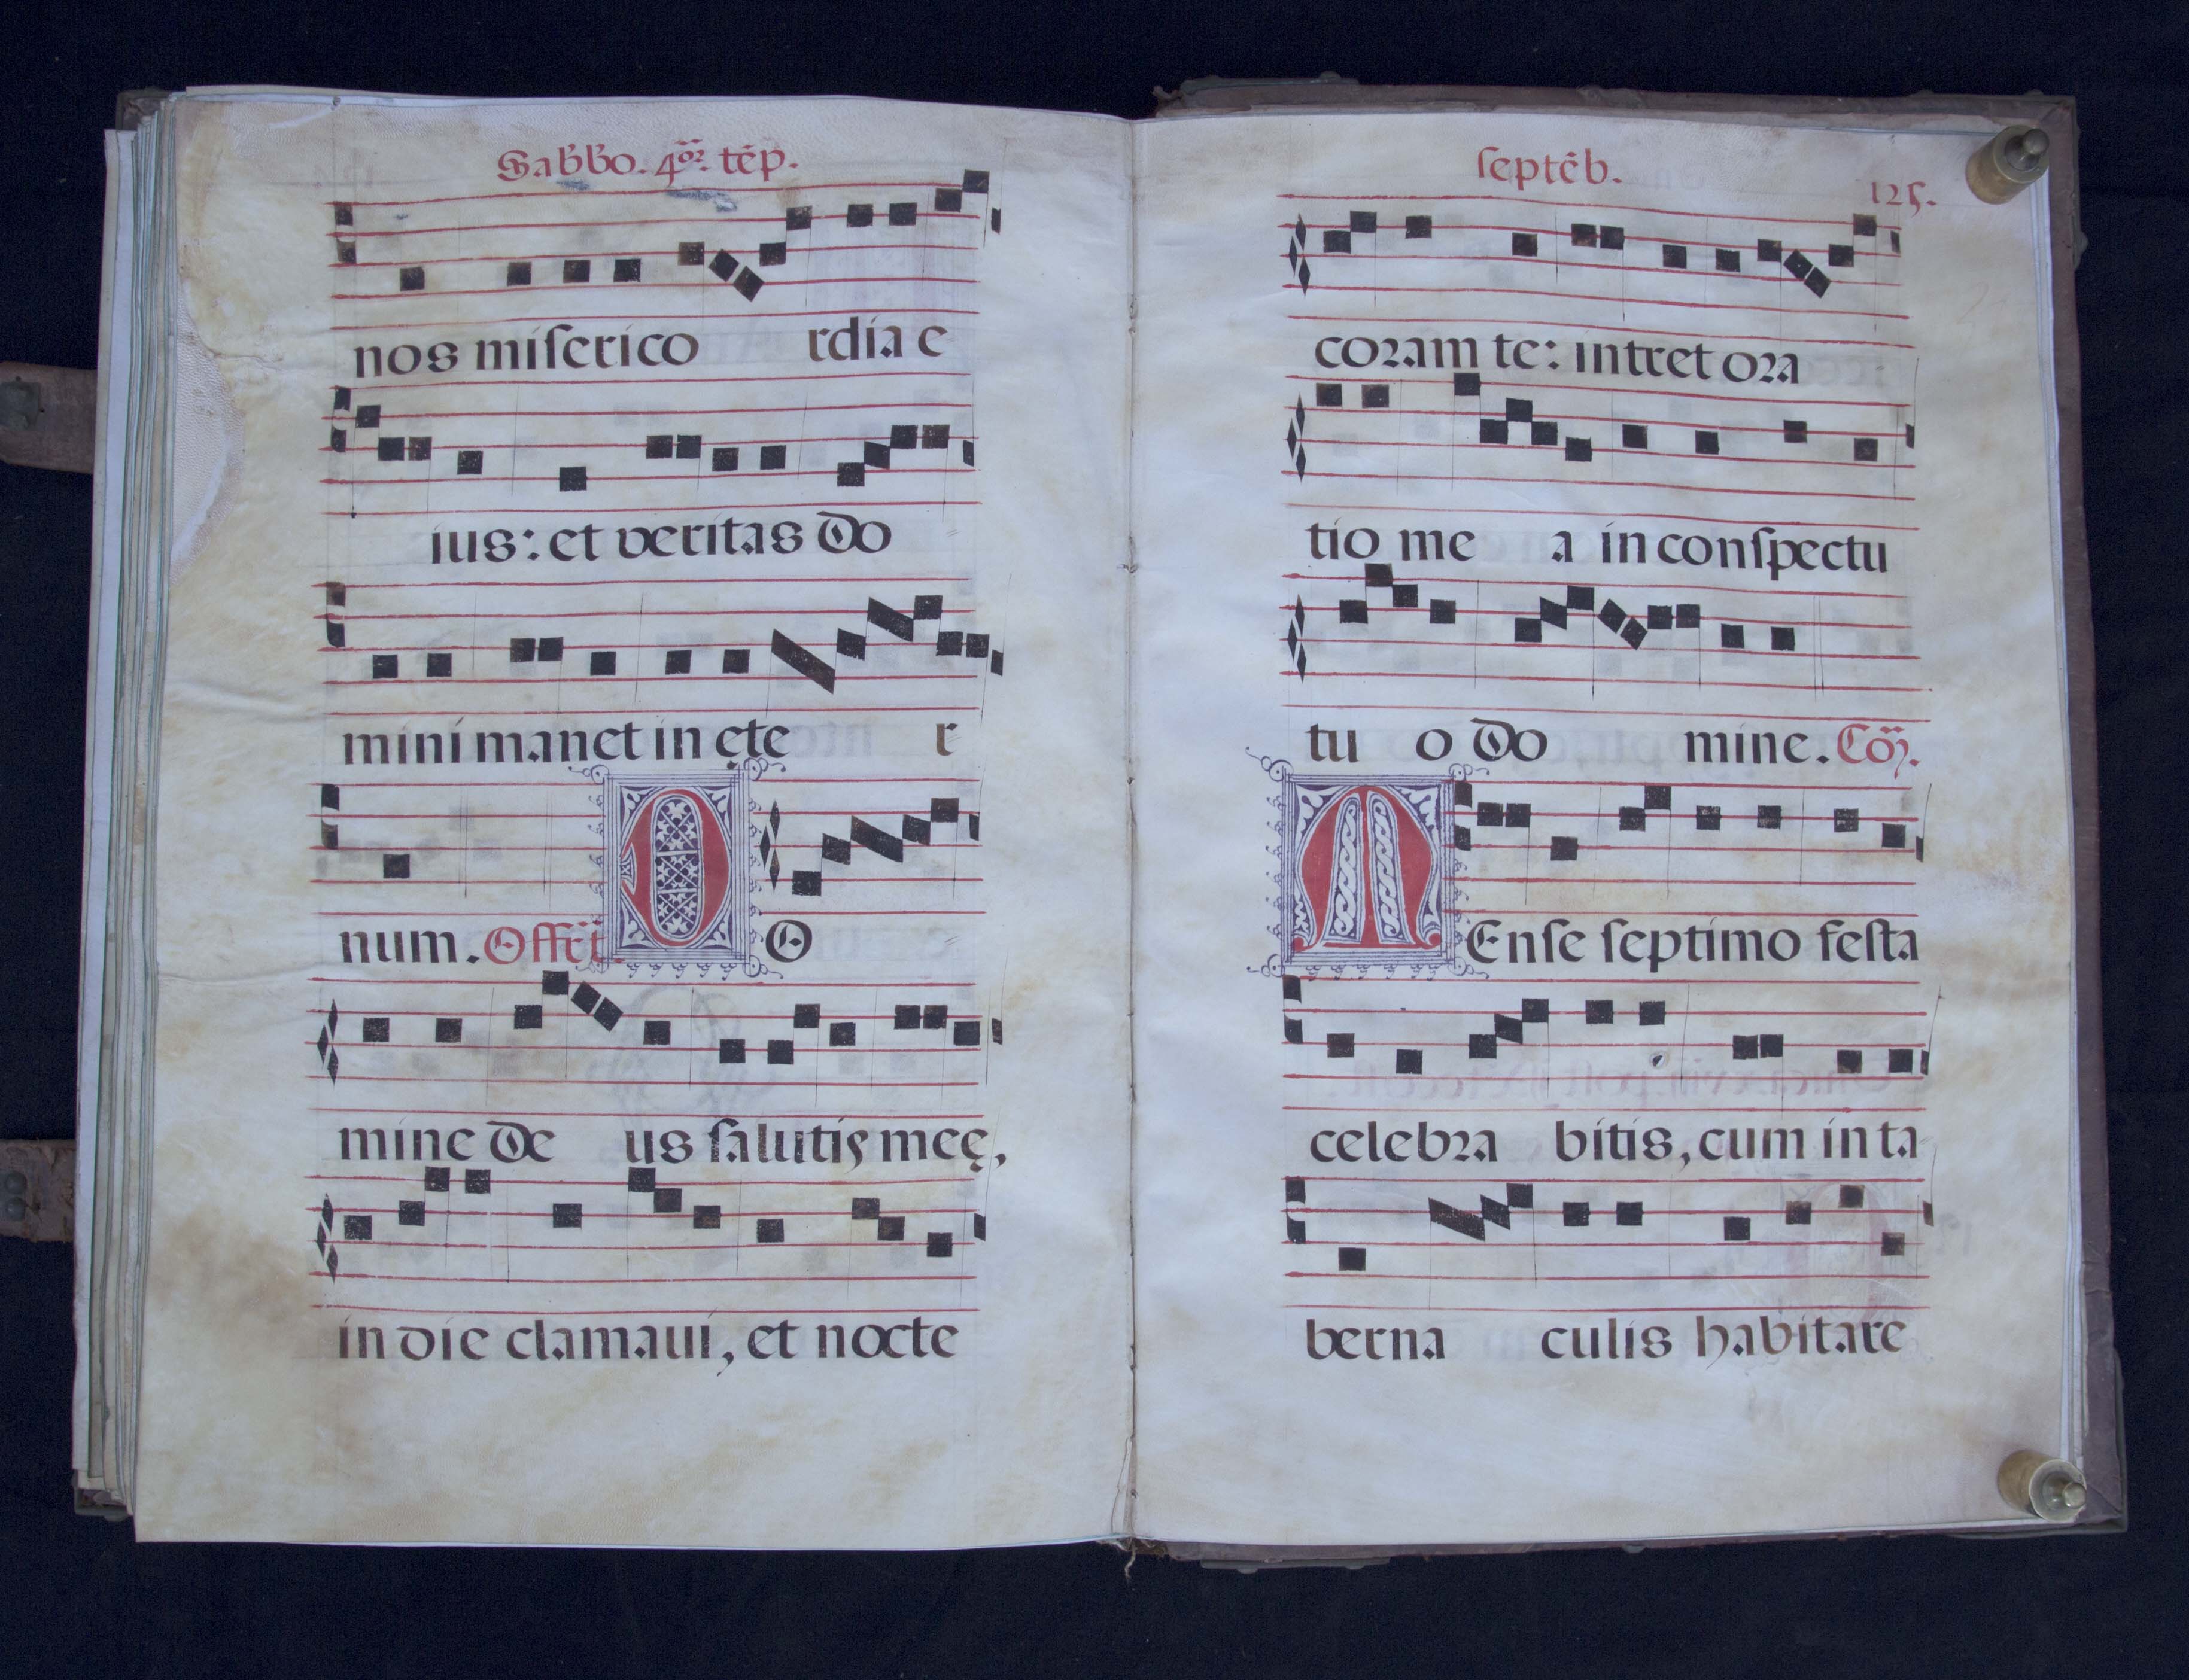 Sabbo. 4or. tēp.
nos misericordia e
ius: et veritas Do
mini manet in ęter
num. Offeī. DO
mine De us salutis meę,
in die clamaui, et nocte
septēb.
125.
coram te: intret ora
tio me a in conspectu
tu o Do mine. Cō.
MEnse septimo festa
celebra bitis, cum in ta
berna culis habitare